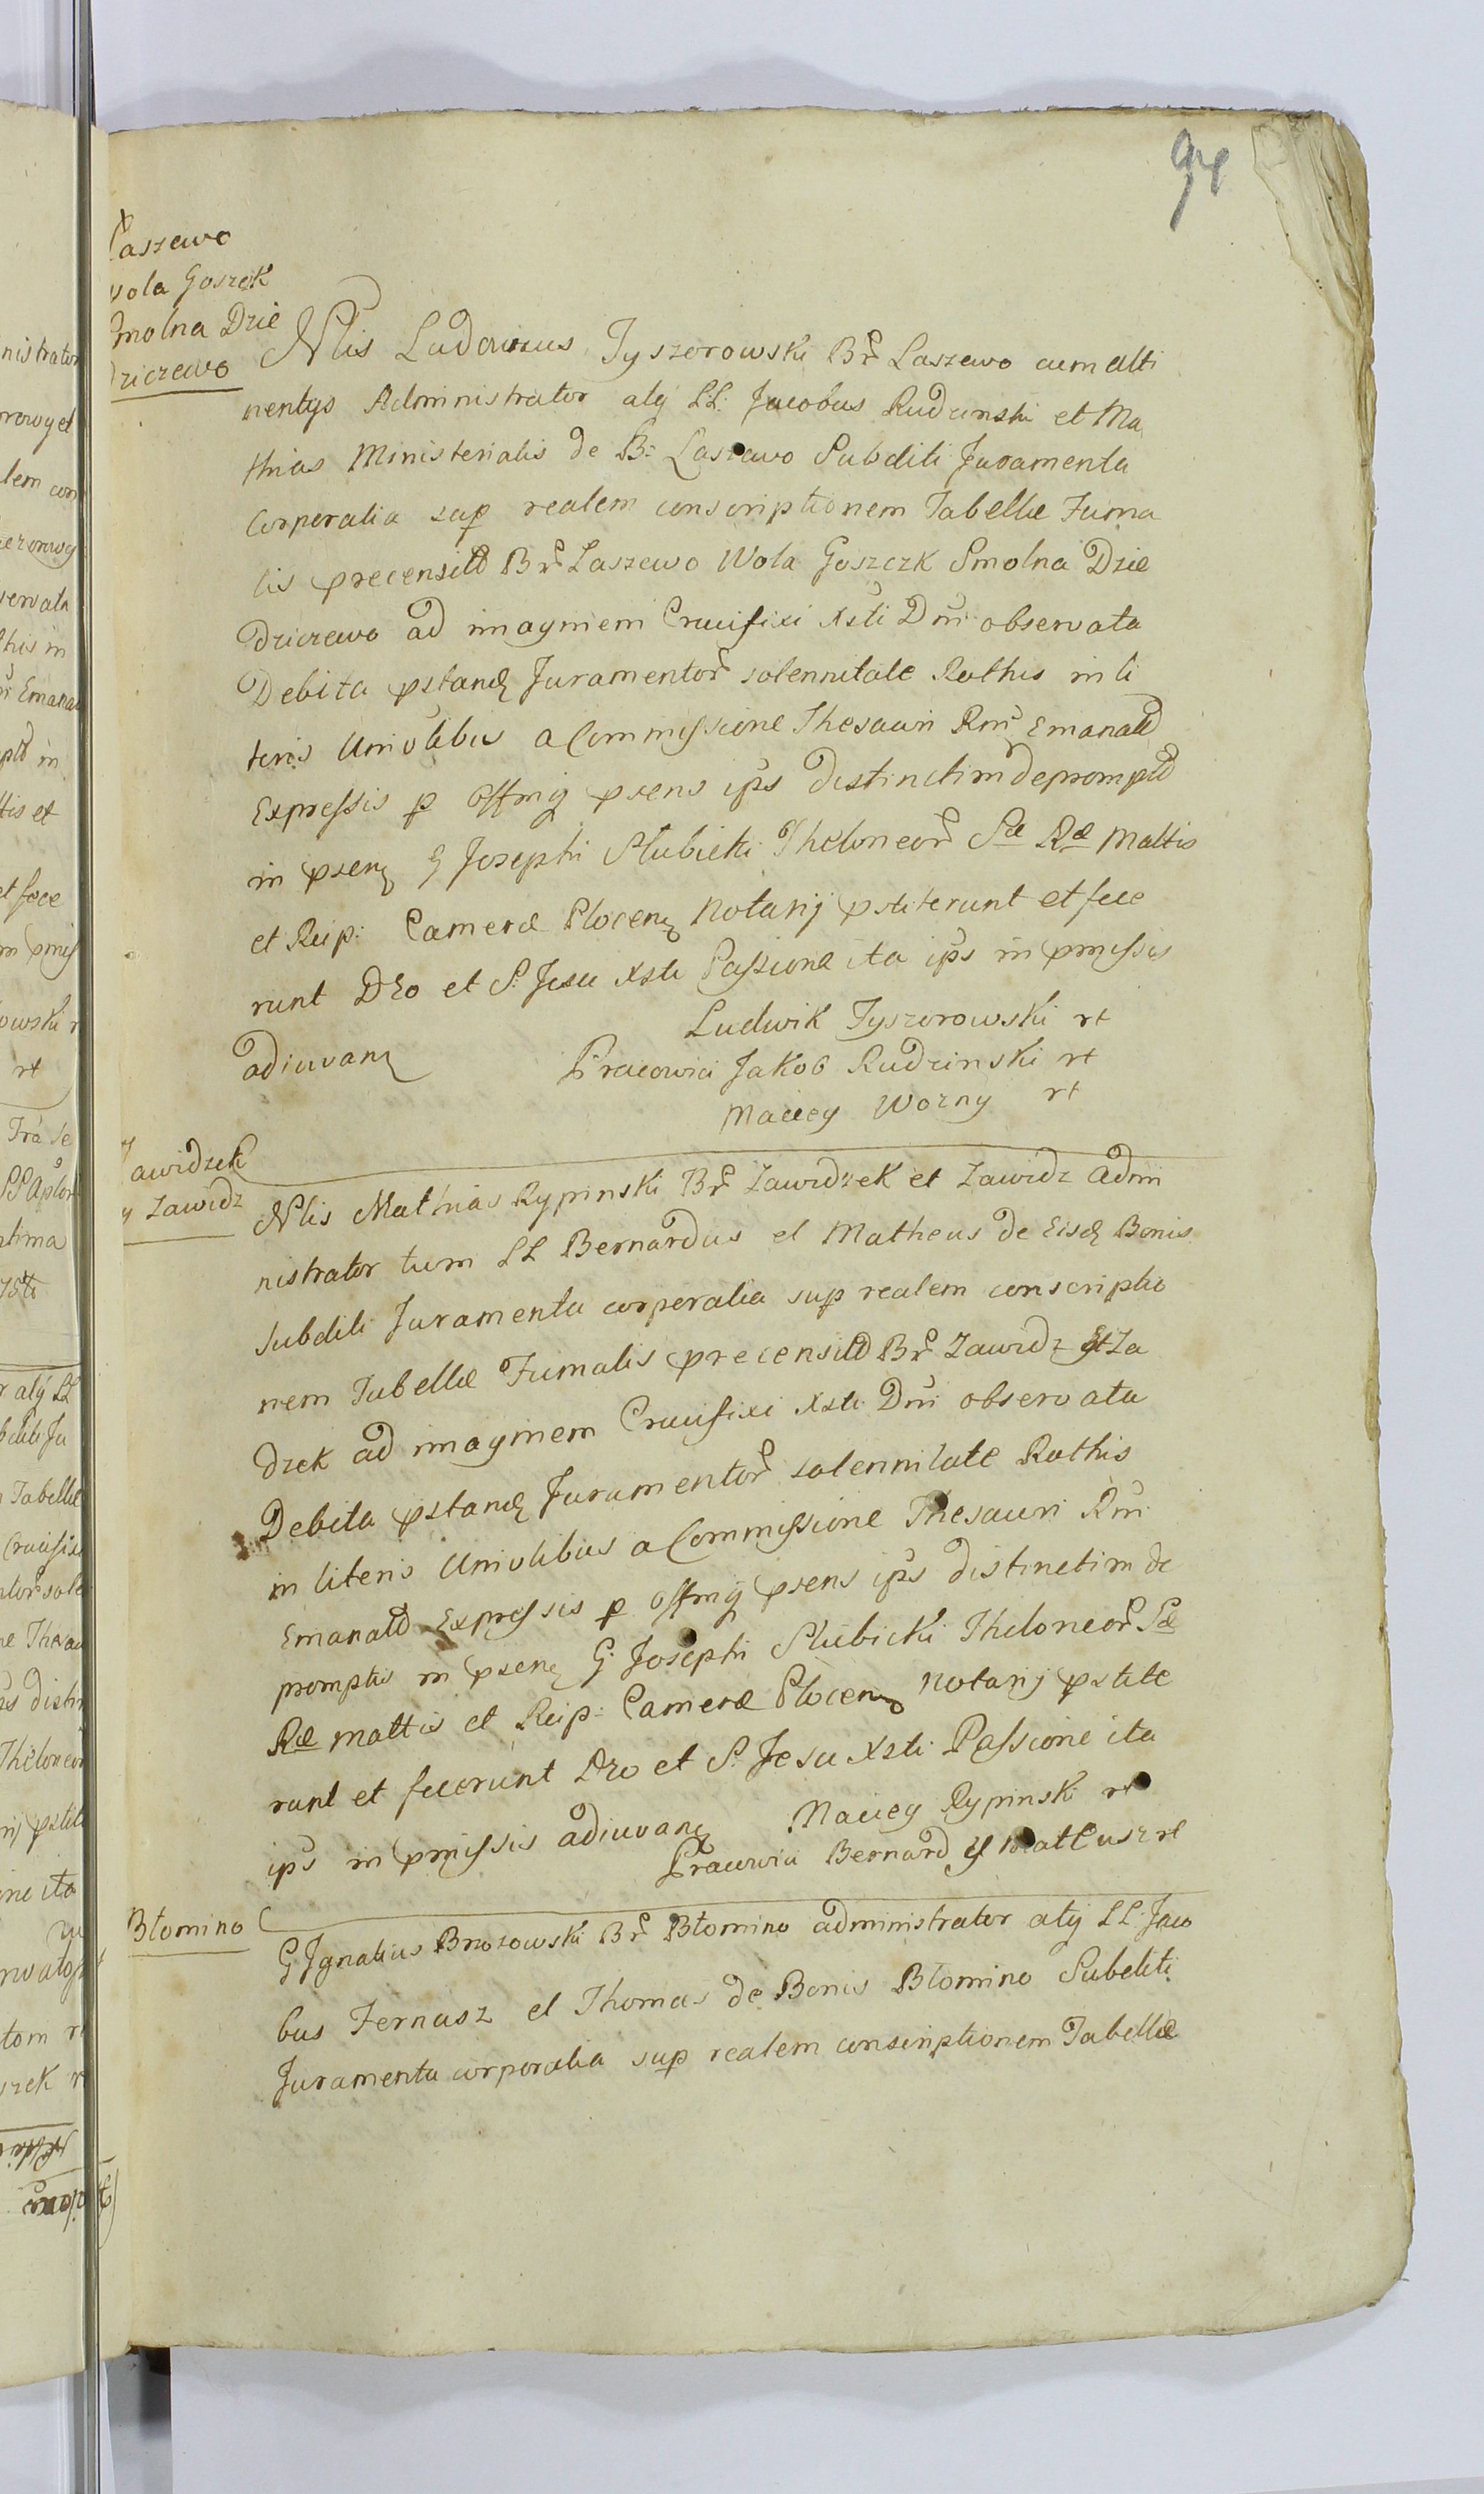 94
Łaszewo
Wola Goszczk
Smolna Dzie
dziczewo
Nlis Ludovicus Tyszorowski Br̃ Łaszewo cum atti
nentys Administrator atq LL: Jacobus Rudzinski et Ma
thias Ministerialis de B: Laszewo Subditi Juramenta
Corporalia sup realem conscriptionem Tabellæ Fuma
lis precensitt Br̃ Laszewo Wola Goszczk Smolna Dzie
dziczewo ad imaginem Crucifixi Xsti Dni observata
Debita pstand Juramentor̃ solennitate Rothis in li
teris Univlibus a Commissione Thesauri Rni Emanatt
Expressis p Offmq psens ips distinctim deprompt
in psen G Josephi Slubicki Theloneor̃ Sæ Ræ Mattis
et Reip: Cameræ Plocen Notarij pstiterunt et fece
runt Deo et S. Jesu Xsti Passione ita ips in pmissis
adiuvan
Ludwik Tyszorowski rt
Pracowici Jakob Rudzinski rt
Maciey Wozny rt
Zawidzek
y Zawidz
Nlis Mathias Rypinski Br̃ Zawidzek et Zawidz Admi
nistrator tum LL Bernardus et Matheus de Eisd Bonis
Subditi Juramenta corporalia sup realem conscriptio
nem Tabellæ Fumalis precensitt Br̃ Zawidz et Za
dzek ad imaginem Crucifixi Xsti Dni observata
Debita pstand Juramentor̃ solennitate Rothis
in literis Univlibus a Commissione Thesauri Rni
Emanatt Expressis p Offmq psens ips distinctim de
promptis in psen G. Josephi Slubicki Theloneor̃ Sæ
Ræ Mattis et Reip: Cameræ Plocen Notarij pstite
runt et fecerunt Deo et S. Jesu Xsti Passione ita
ips in pmissis adiuvan
Maciey Rypinski rt
Pracowici Bernard y Matteusz rt
Błomino
G Ignatius Brzozowski Br̃ Błomino administrator atq LL: Jaco
bus Fernasz et Thomas de Bonis Błomino Subditi
Juramenta corporalia sup realem conscriptionem Tabellæ